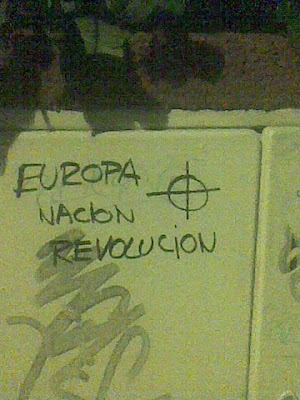 EUROPA
NACION
REVOLUCION